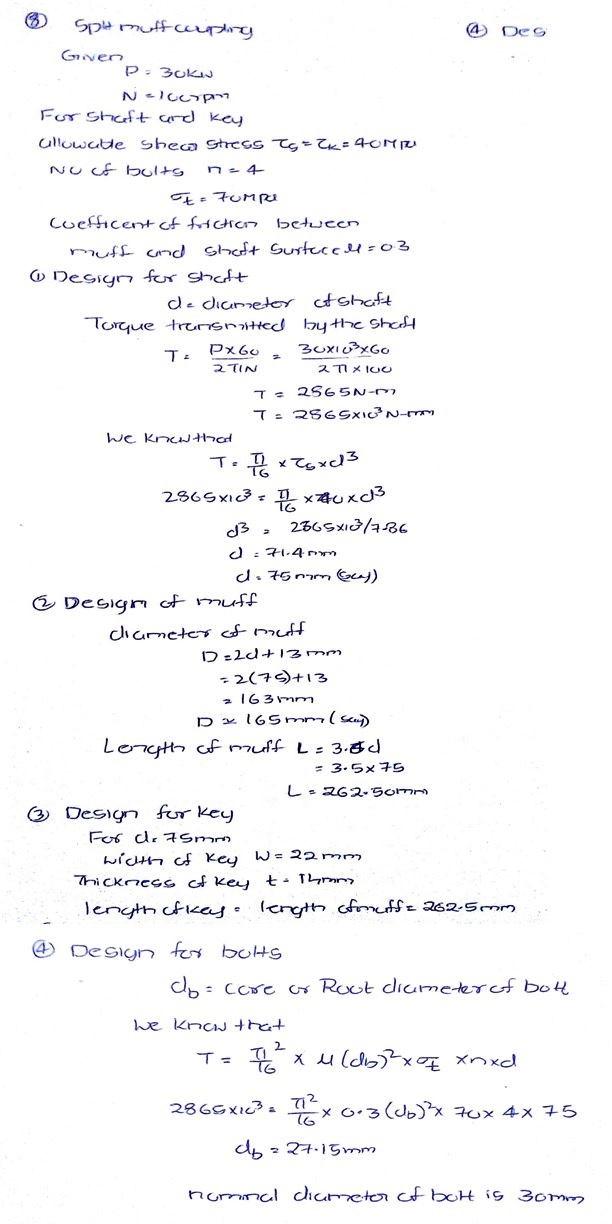 ③ Split muff coupling
④ Des
Given
P = 30kw
N = 100rpm
For shaft and key
allowable shear stress τs = τk = 40MPa
No of bolts n = 4
σt = 70MPa
Coefficent of friction between
muff and shaft surface μ = 0.3
① Design for shaft
d = diameter of shaft
Torque transmitted by the shaft
T = P×60/2πN = 30×10³×60/2π×100
T = 2865N-m
T = 2865×10³N-mm
We know that
T = π/16 × τs×d³
2865×10³ = π/16 × 40×d³
d³ = 2865×10³/7.86
d = 71.4mm
d = 75mm (say)
② Design of muff
diameter of muff
D = 2d+13mm
= 2(75)+13
= 163mm
D ≃ 165mm (say)
Length of muff L = 3.5d
= 3.5×75
L = 262.50mm
③ Design for key
For d = 75mm
width of key W = 22mm
Thickness of key t = 14mm
length of key = length of muff = 262.5mm
④ Design for bolts
db = core or Root diameter of bolt
We know that
T = π²/16 × μ(db)²×σt ×n×d
2865×10³ = π²/16 × 0.3(db)²× 70× 4× 75
db = 27.15mm
nominal diameter of bolt is 30mm